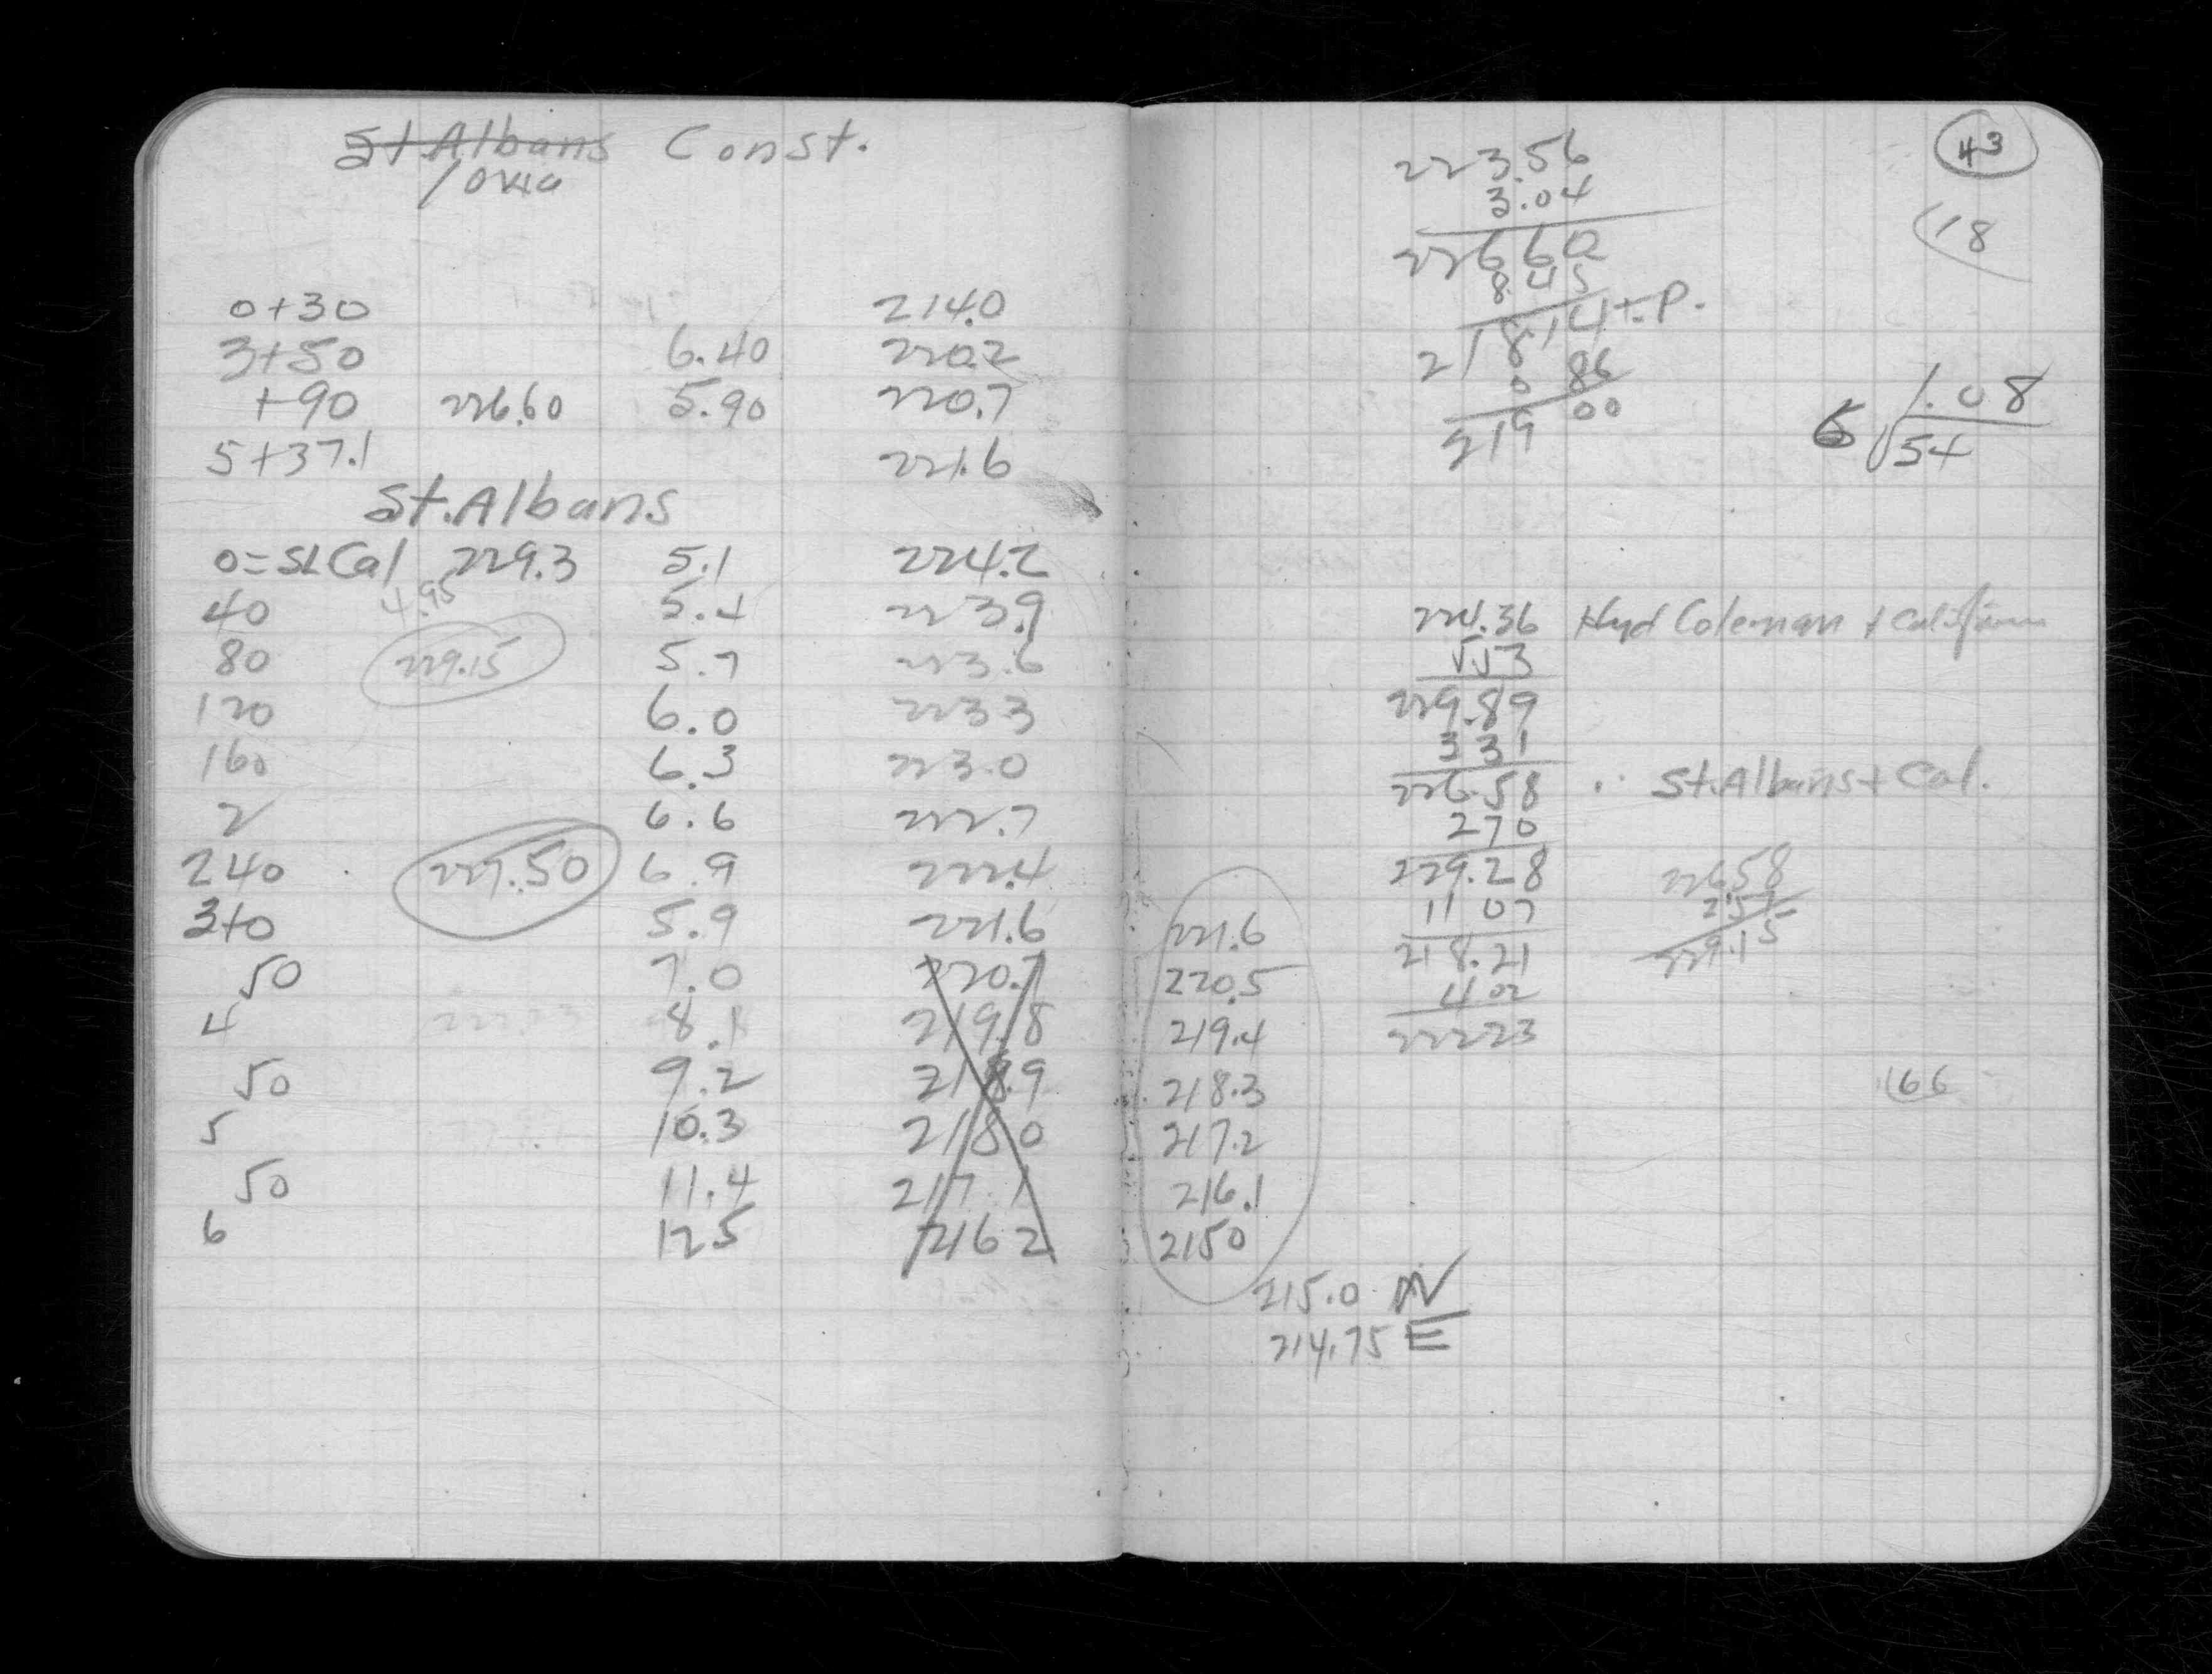 St. Albans Const.
Iowa
0+30 214.0
3+50 6.40 220.2
+90 226.60 5.90 220.7
5+37.1 221.6
St. Albans
0=SL Cal 229.3 5.1 224.2
4.95
40 5.4 223.9
80 229.15 5.7 223.6
120 6.0 223 3
160 6.3 223.0
2 6.6 222.7
240 227.50 6.9 222.4
3+0 5.9 221.6
50 7.0 220.7
4 222 23 8.1 219.8
50 9.2 218.9
5 10.3 218 0
50 11.4 217.1
6 12 5 216 2
43
18
223.56
3.04
226 60
8.45
218.14 t.P.
0 86
219 00
1.08
6 54
224.36 Hyd Coleman + California
5.53
229.89
3 31
226.58 St. Albans + Cal.
2 70
229.28
11 07
218.21
4 02
222 23
226.58
2.57
229.15
221.6
220.5
219.4
218.3
217.2
216.1
215 0
166
215.0 W
214.75 E